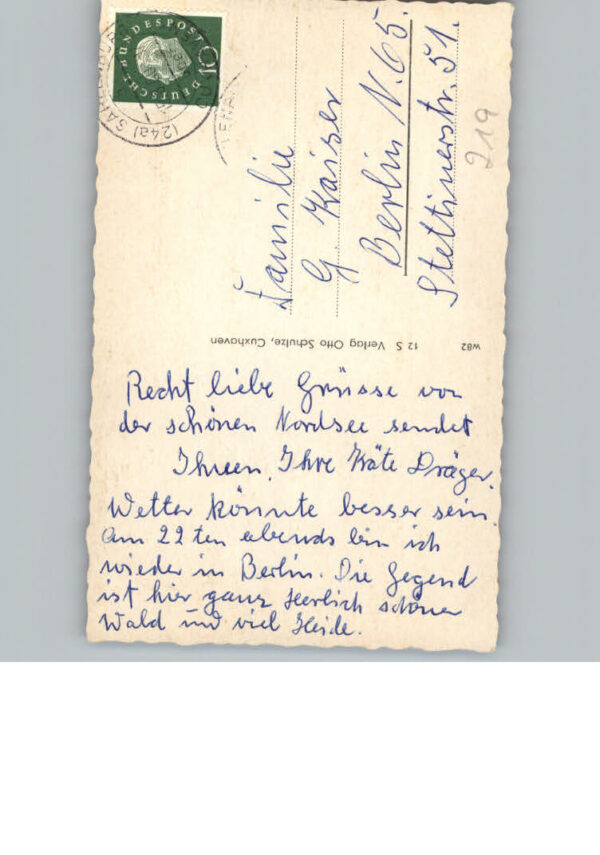 Recht liebe Grüsse von
der schönen Nordsee sendet
Ihnen, Ihre Käte Dräger.
Wetter könnte besser sein.
Am 22ten abends bin ich
wieder in Berlin. Die Gegend
ist hier ganz herrlich schöner
Wald und viel Heide.
Familie
G. Kaiser
Berlin N. 65.
Stettinerstr. 51.
219
W82 12 S Verlag Otto Schulze, Cuxhaven
DEUTSCHE BUNDESPOST
10
(24a)